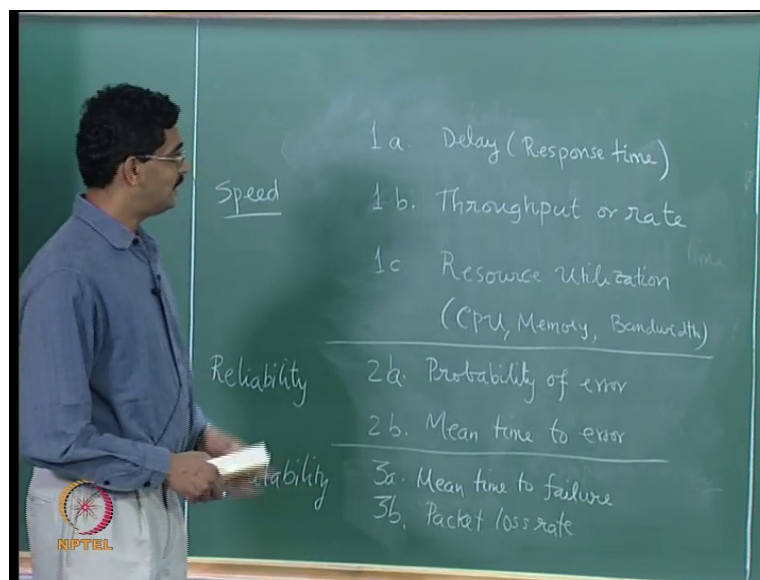 1a. Delay (Response time)
Speed 1b. Throughput or rate
1c Resource Utilization
(CPU, Memory, Bandwidth)
Reliability 2a. Probability of error
2b. Mean time to error
3a. Mean time to failure
3b. Packet loss rate
NPTEL